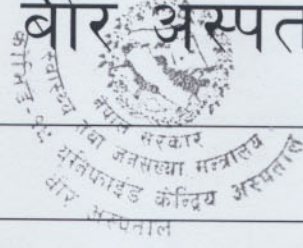 बीर अस्पत
नेपाल सरकार
स्वास्थ्य तथा जनसंख्या मन्त्रालय
युनिफाइड केन्द्रिय अस्पताल
बीर अस्पताल